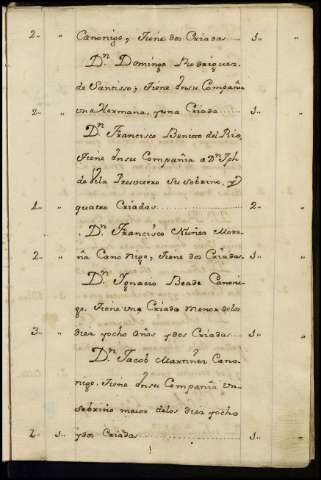 2.. " Canonigo, tiene dos Criadas 1.. "
Dn. Domingo Rodriguez
de Santiso; tiene En su Compañia
2.. " una Hermana, y una Criada 1.. "
Dn. Francisco Benito del Rio,
tiene En su Compañia a Dn. Jph
de Vila Presvitero su sobrino, y
1.. " quatro Criadas 2.. "
Dn. Francisco Nuñez
2.. " Canonigo, tiene dos Criadas 1.. "
Dn. Ignacio Beade Canoni-
go. tiene una Criada menor delos
3.. " diez yocho años y dos Criadas 1.. "
Dn. Jacob Martinez Cano-
nigo, tiene En su Compañia un
sobrino maior delos diez yocho
2.. 1.. ydos Criadas 1.. "